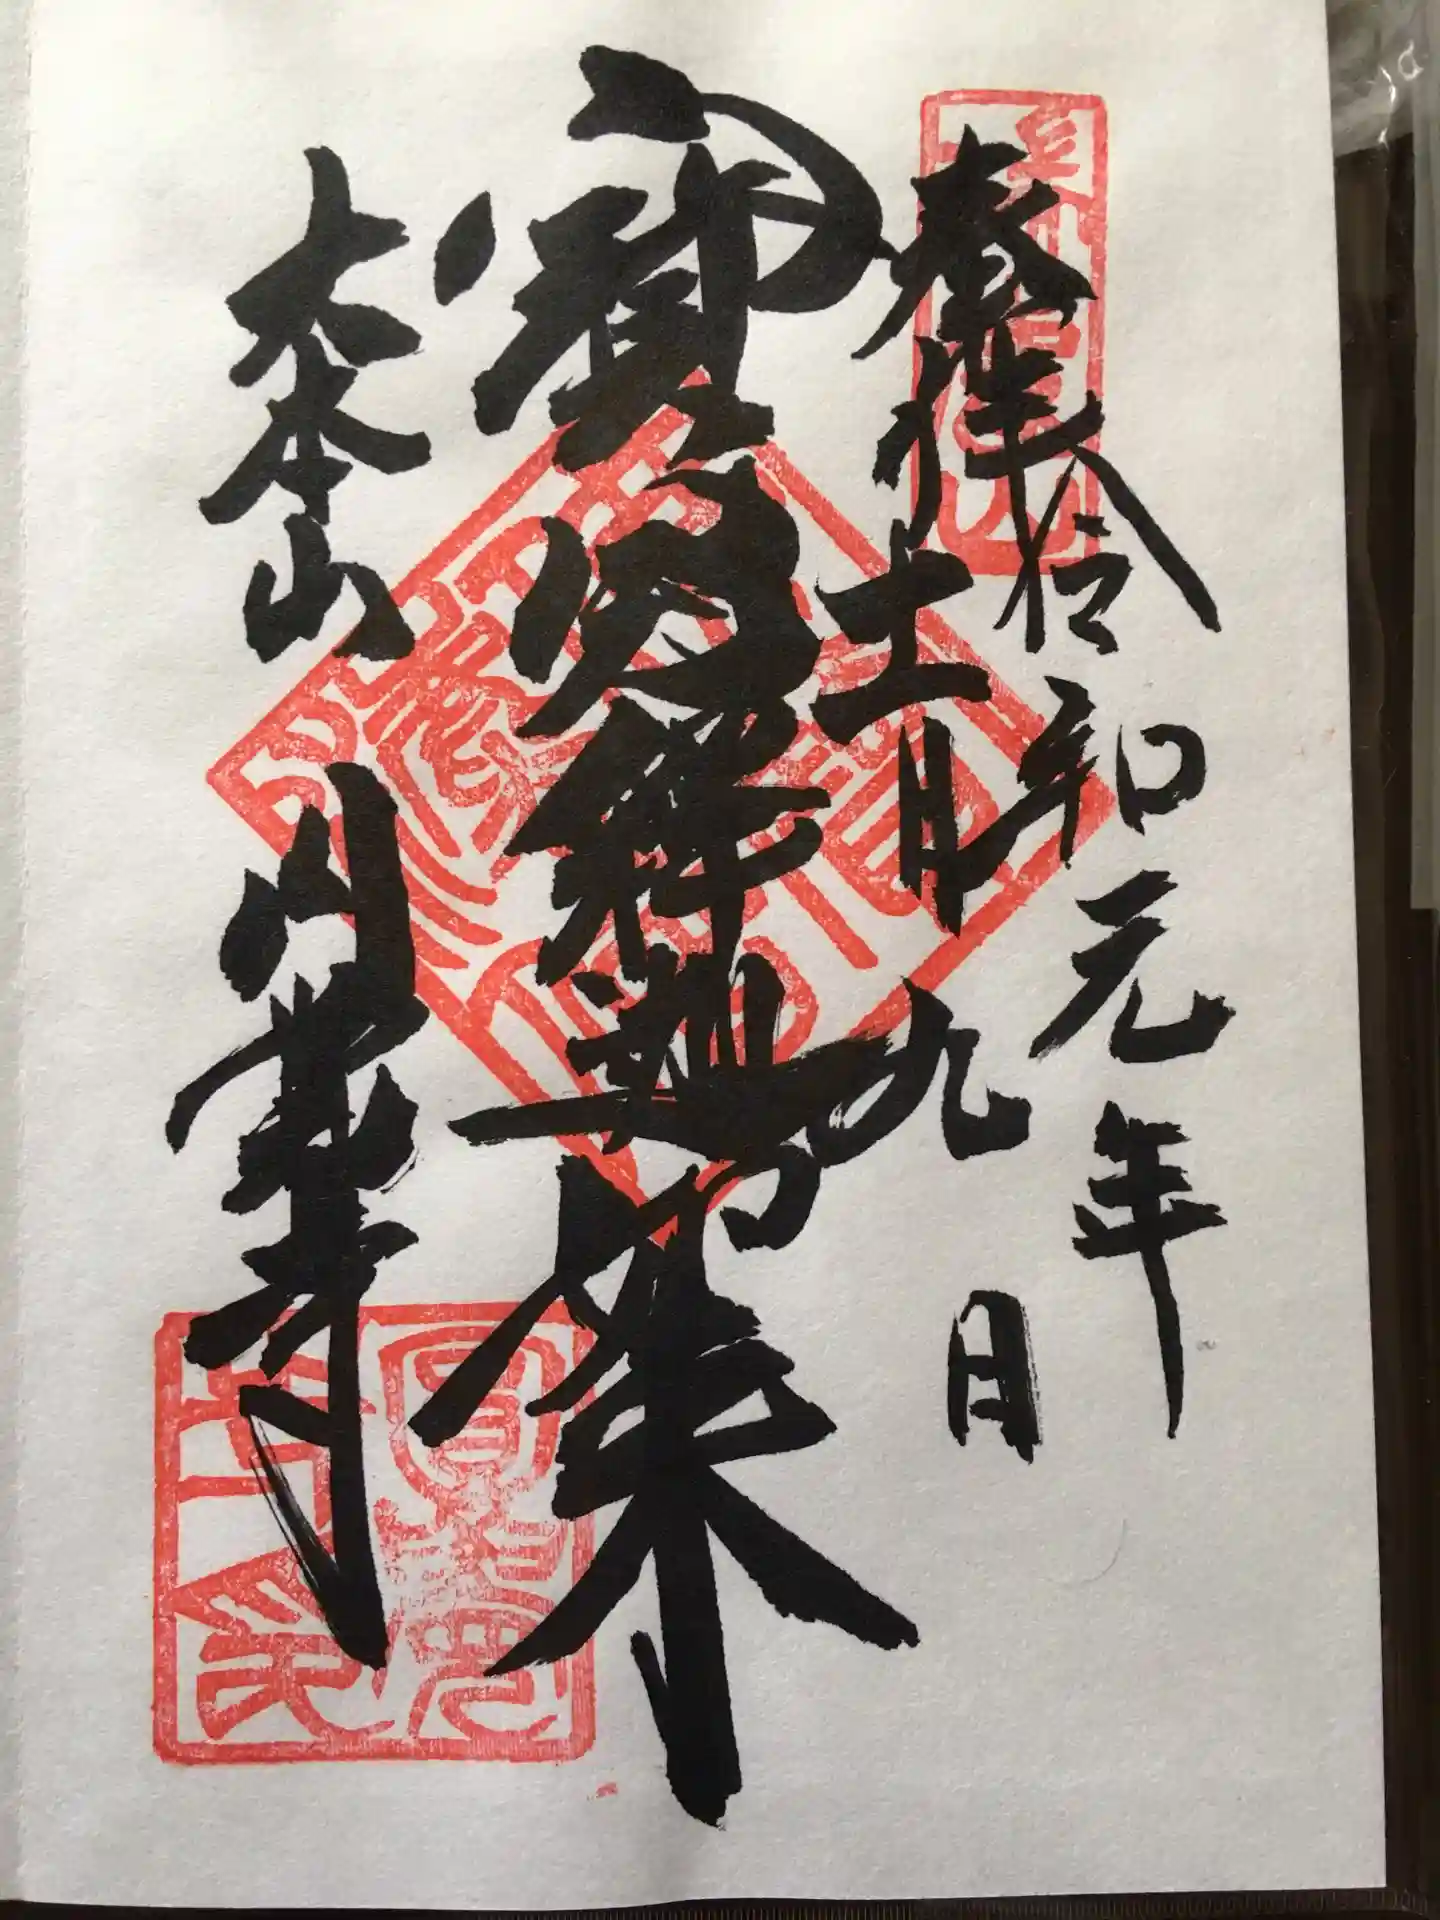 奉拝
令和元年
十一月九日
寶冠釋迦如来
大本山
円覚寺